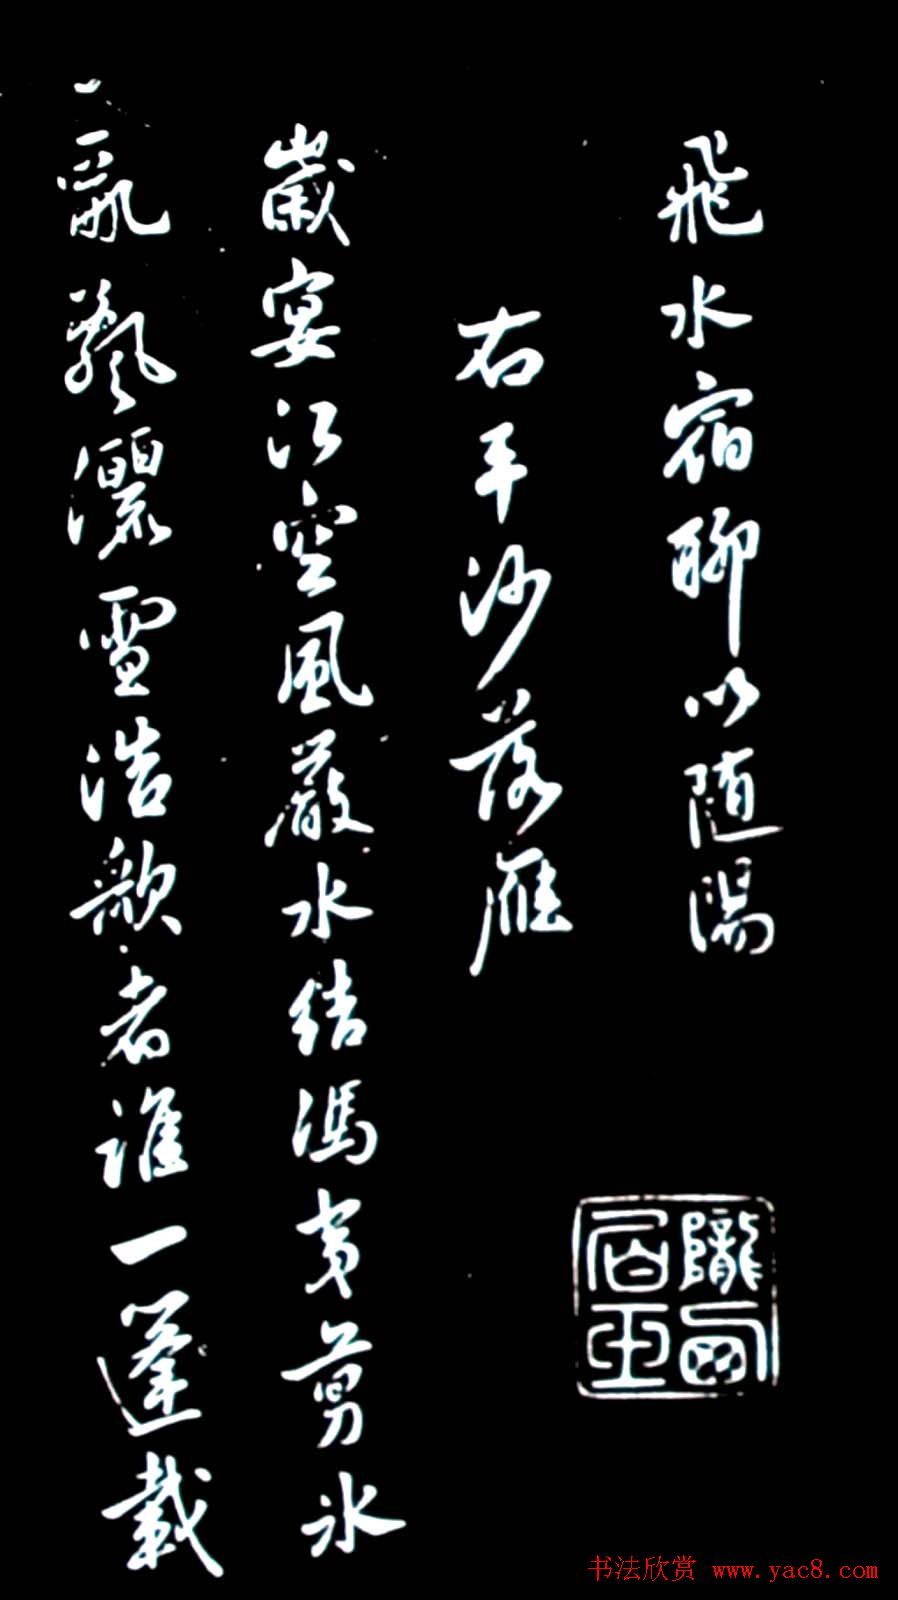 飛水宿聊以随陽
右平沙落雁
歲宴江空風嚴水結馮夷剪冰
亂飄灑雪浩歌者誰一篷載
隴西
书法欣赏 www.yac8.com